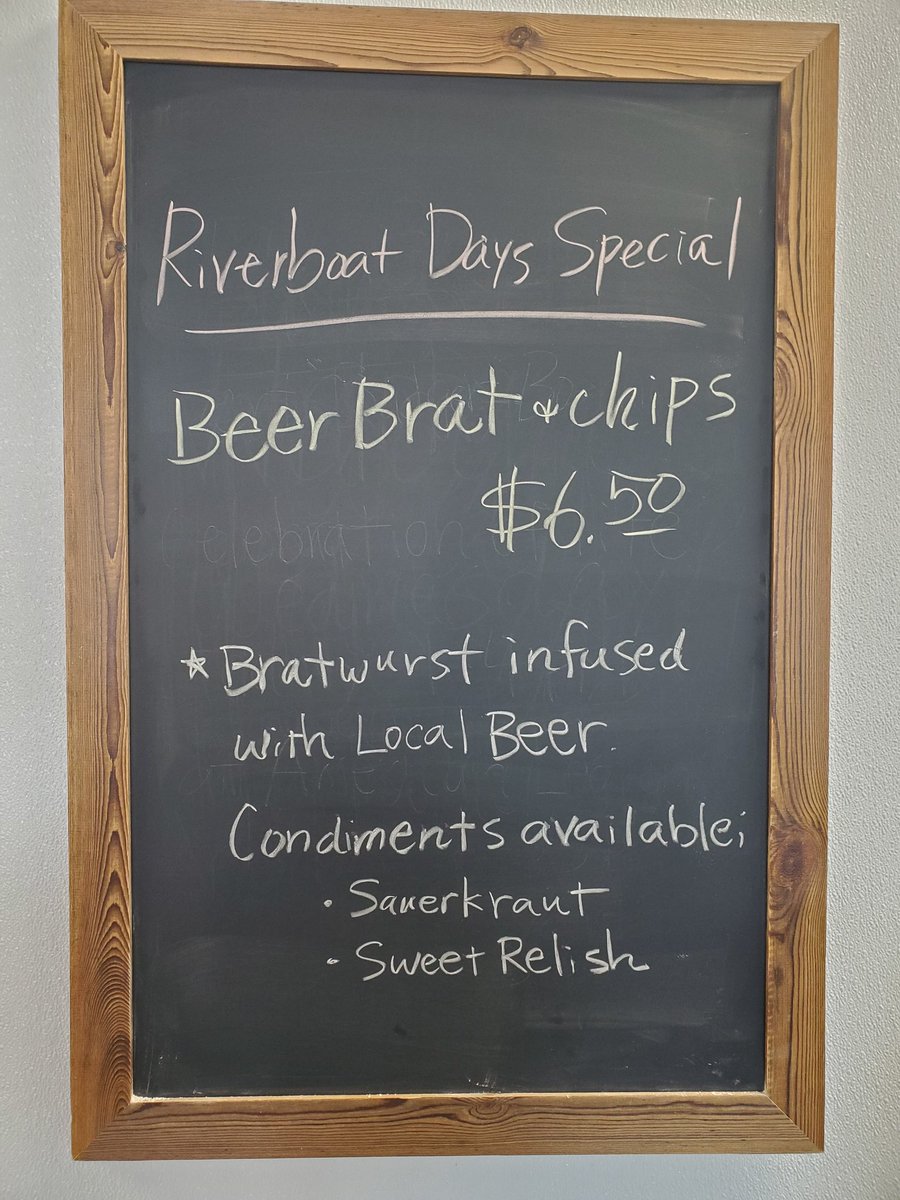 Riverboat Days Special
Beer Brat & chips
$6.50
* Bratwurst infused
with Local Beer.
Condiments available;
• Sauerkraut
• Sweet Relish